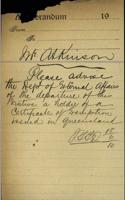 Memorandum 19
From
To
Mr Atkinson
Please advise
the Dept of External Affairs
of the departure of the
Native a holder of a
Certificate of Exemption
issued in Queensland
18
2
10